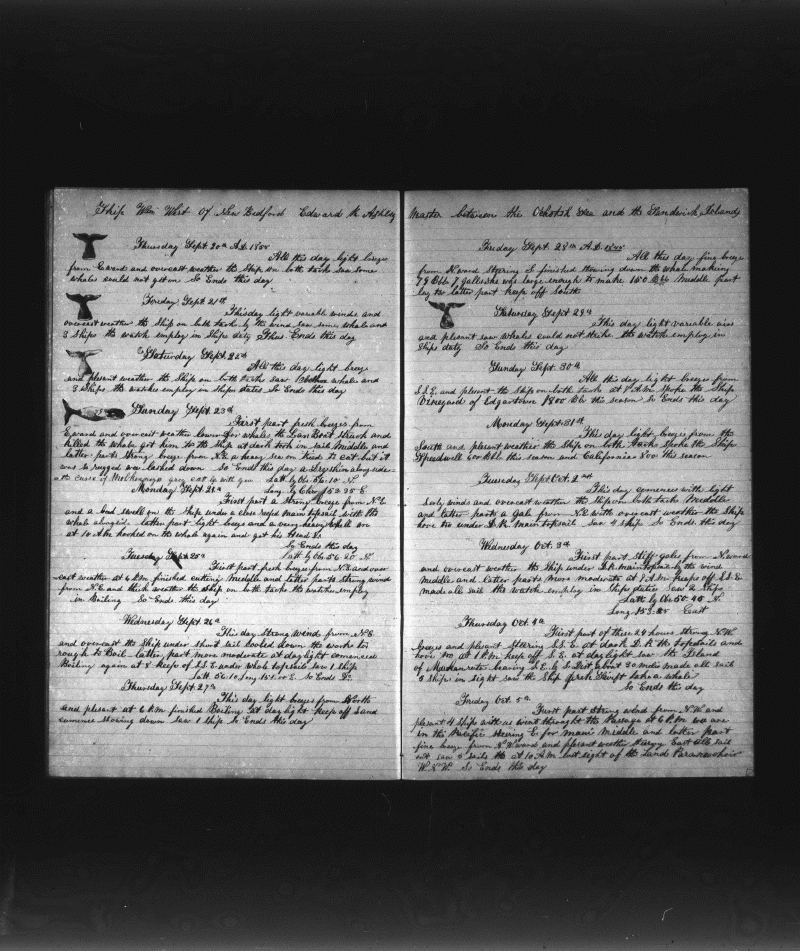 Ship Wm Wirt of New Bedford Edward R Ashley
Thursday Sept 20th A.D. 1855
All this day light breeze
from E ward and overcast weather the Ship on both tacks saw some
whales could not get on So Ends this day
Freday Sept 21st
This day light variable winds and
overcast weather the Ship on both tacks by the wind saw some whale and
3 Ships the watch employ in Ships duty Thus Ends this day
Saturday Sept 22d
All this day light breeze
and plesant weather the Ship on both tacks saw whale and
3 Ships the watches employ in Ships duty So Ends this day
Sunday Sept 23d
First part fresh breezes from
E ward and overcast weather lowered for whales the Lar Boat struck and
killed the whale got him to the Ship at dark took in sail Middle and
latter parts strong breeze from N.E. a heavy sea on tried to cut but it
was to rugged was lashed down So Ends this day a Dryskin along side
Latt by Obs 56-10 N.
Long by Chro 153-35 E
Monday Sept 24th
First part a strong breeze from N.E
and a bad swell on the Ship under a close reefd main topsail with the
whale alongside latter part light breeze and a very heavy swell on
at 10 AM hooked on the whale again and got his head in
So Ends this day
Latt by Obs 56-20 N.
Tuesday Sept 25th
First part fresh breezes from N.E and over
cast weather at 6 P.M. finished cutting Meddle and latter parts strong wind
from N.E and thick weather the Ship on both tacks the watches employ
in Boiling So Ends this day
Wednesday Sept 26th
This day strong wind from N.E.
and overcast the Ship under short sail cooled down the works too
rough to Boil latter part more moderate at daylight commenced
Boiling again at 8 Keeps of S.S.E under whole topsails saw 1 ship
Latt 56-10 Long 151-00 E So Ends
Thursday Sept 27th
This day light breezes from North
and plesant at 6 P.M. finished Boiling at daylight Keep off S and
commence stowing down saw 1 Ship So Ends this day
Master between the Ochotsk Sea and the Sandwich Islands
Friday Sept 28th A.D. 1855
All this day fine breeze
from N.ward Steering S finished stowing down the whale making
79 Bbls 7 Galls she was large enough to make 150 Bbls Middle part
lay too latter part keep off South
Saturday Sept 29th
This day light variable airs
and plesant saw whales could not strike the watch employ in
Ships duty So Ends this day
Sunday Sept 30th
All this day light breezes from
S.S.E. and plesant the ship on both tacks at 9 A.M. spoke the Ship
Vineyard of Edgartown 1800 Bbls this season So Ends this day
Monday Sept 31st
This day light breezes from the
South and plesant weather the Ship on both Tacks spoke the Ships
Speedwell 600 Bbl this season and California 800 this season
Tuesday Oct. 2nd
This day comences with light
winds and overcast weather the Ship on both tacks Meddle
and latter parts a Gale from N.E with overcast weather the Ship
hove too under D.R. Main topsail Saw 4 Ship So Ends this day
Wednesday Oct. 3d
First part Stiff gales from N.ward
and overcast weather the Ship under D.R. Main topsail by the wind
Meddle and latter parts more moderate at 7 A.M. Keeps off S.S.E.
made all sail the watch employ in Ships duties Saw 2 Ships
Latt by Obs 50-45 N.
Long. 153-25 East
Thursday Oct. 4th
First part of these 24 hours strong N.W.
breezes and plesant Steering S.S.E at dark D.R. the topsails and
hove too at 1 A.M. keep off S.E. at daylight saw the Island
of bearing S.E. by S Dist about 30 miles made all sail
3 Ships in sight saw the Ship take a whale
So Ends this day
Friday Oct. 5th
First part strong wind from N.W and
plesant 4 Ships with us went throught the Passage at 6 P.M. we are
in the Pacific Steering E. for maui Middle and latter part
fine breeze from N.W.ward and plesant weather Steering East all sail
out saw 3 sails at 10 A.M. lost sight of the Land
W.N.W. So Ends this day